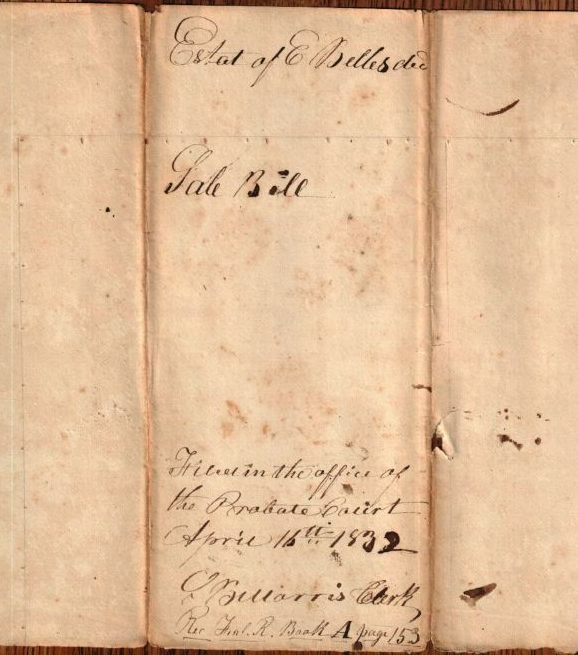 Estat of E Belles dec
Sale Bill
Filed in the office of
the Probate Court
April 16th 1832
Harris Clerk
Rec. R. Book A page 153